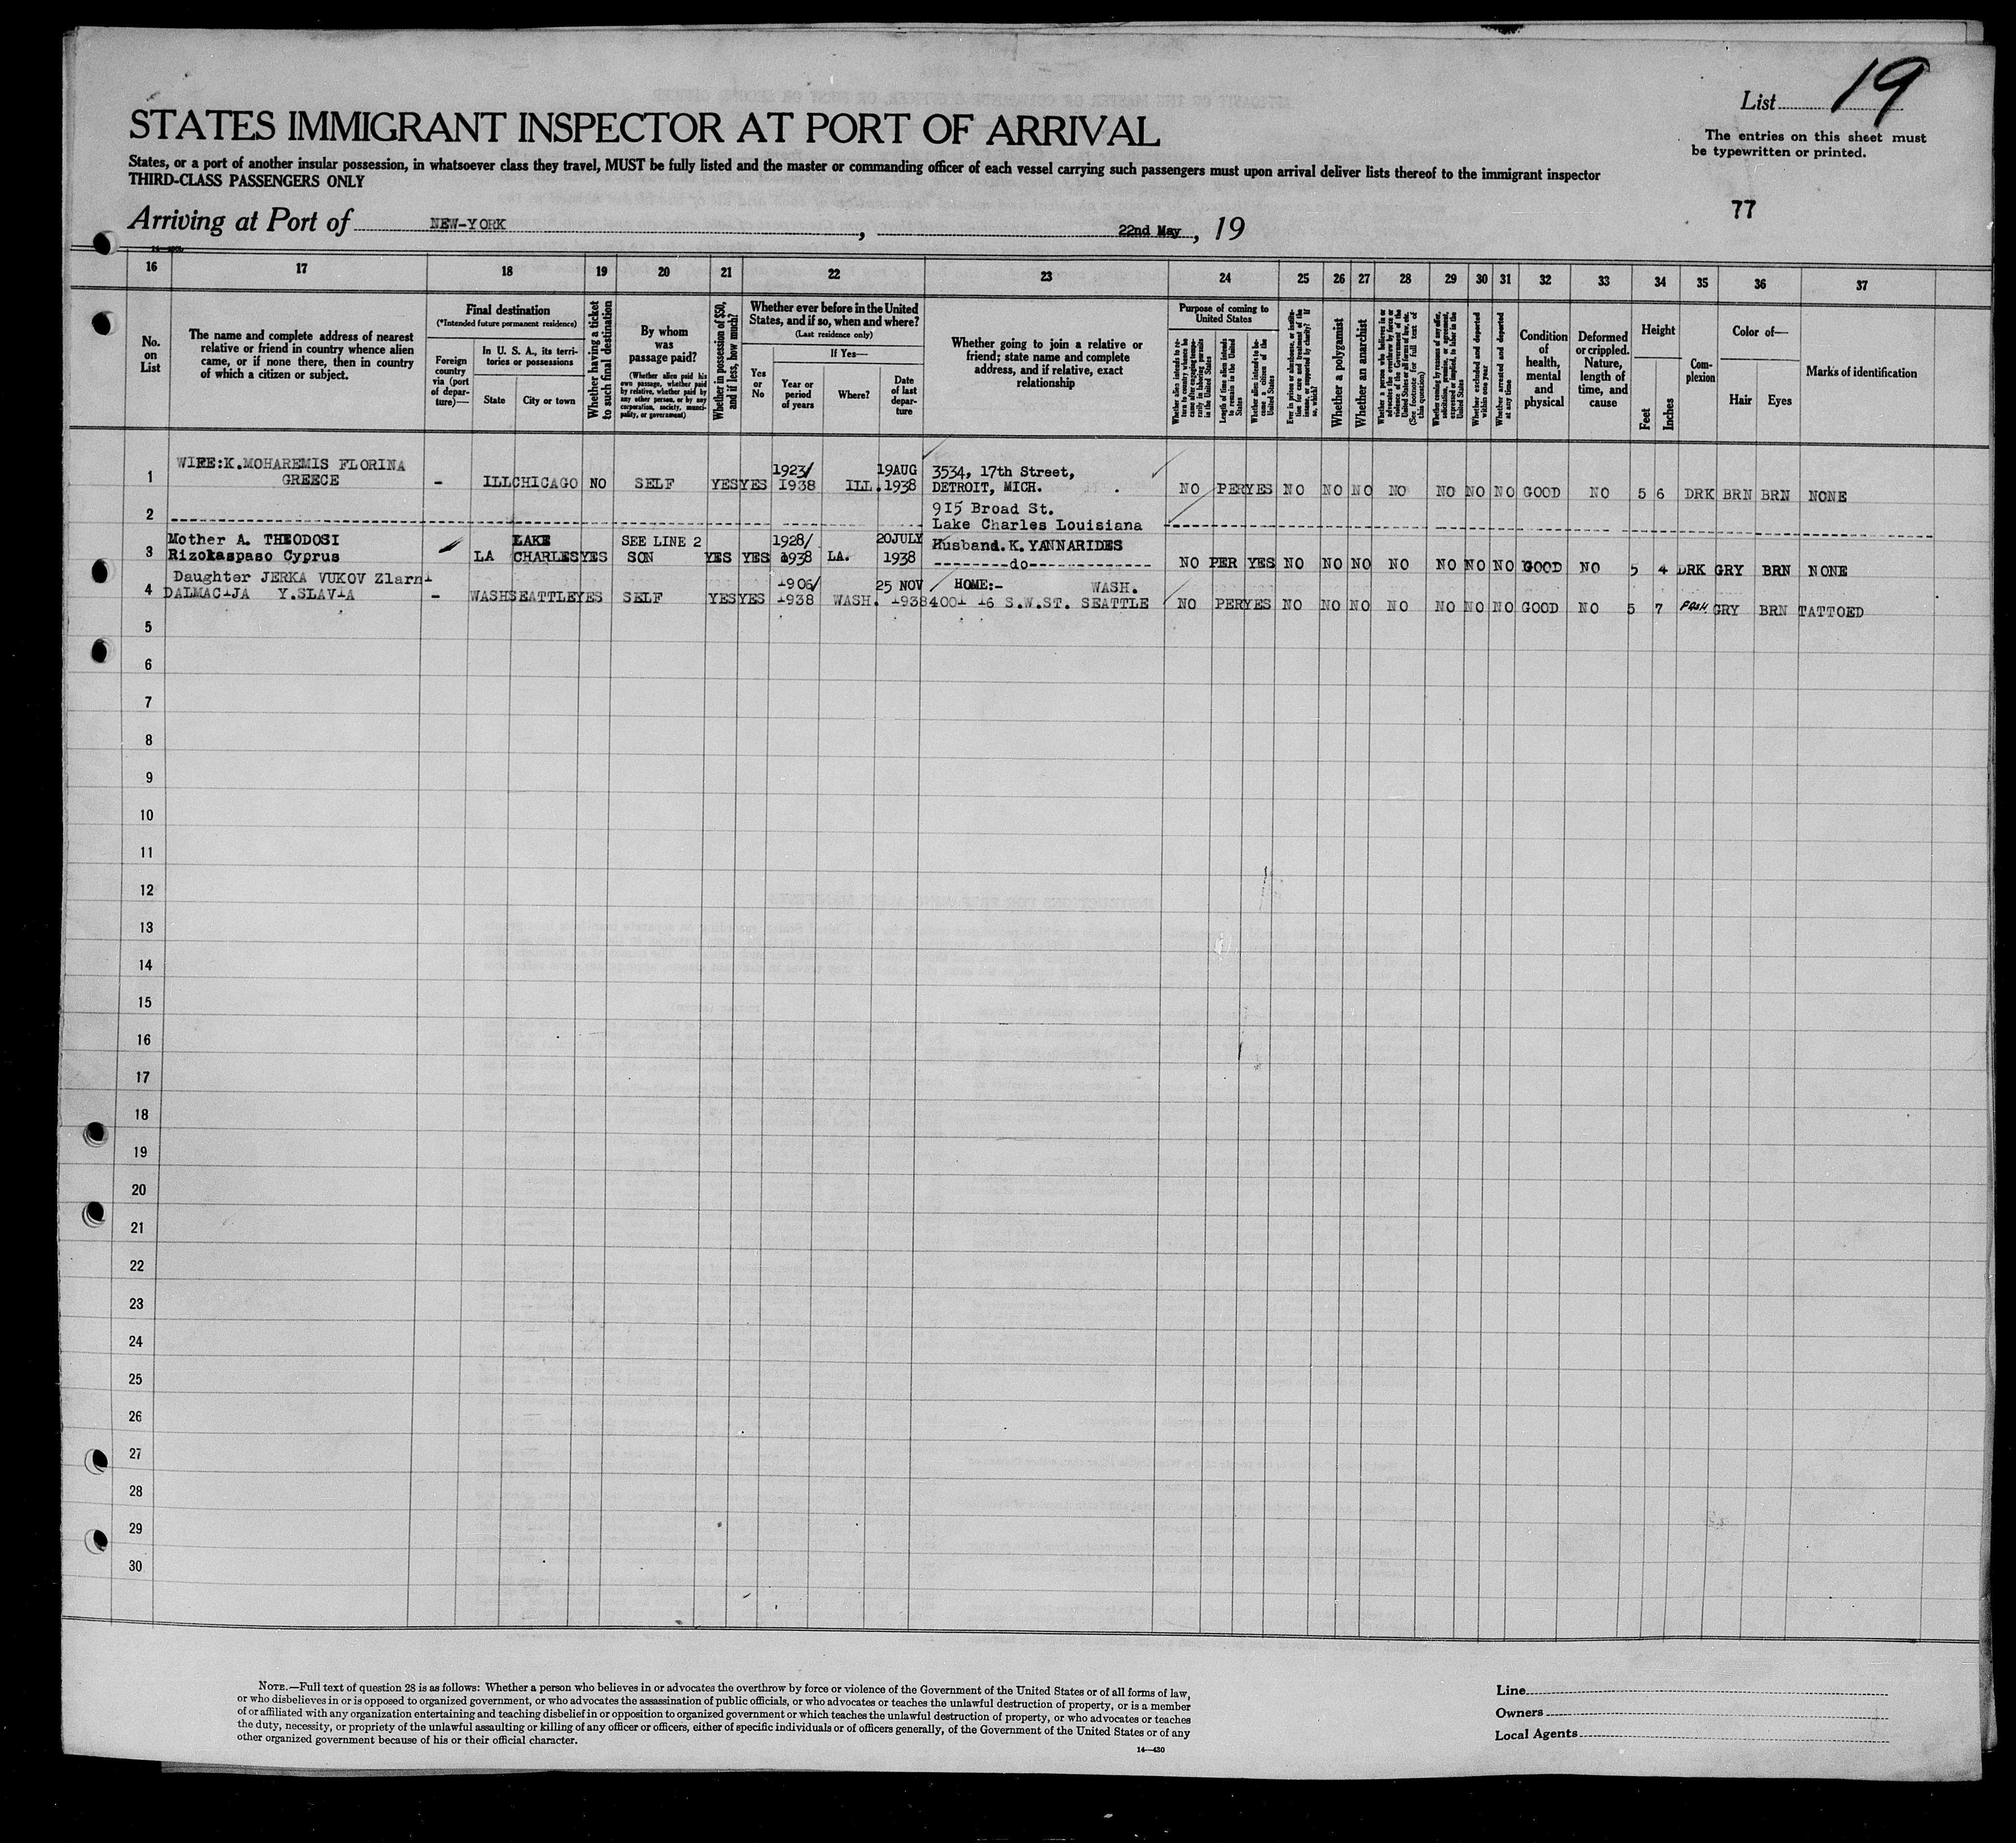 List 19
STATES IMMIGRANT INSPECTOR AT PORT OF ARRIVAL
The entries on this sheet must
be typewritten or printed.
States, or a port of another insular possession, in whatsoever class they travel, MUST be fully listed and the master or commanding officer of each vessel carrying such passengers must upon arrival deliver lists thereof to the immigrant inspector
THIRD-CLASS PASSENGERS ONLY
77
Arriving at Port of NEW-YORK , 22nd May , 19
16 17 18 19 20 21 22 23 24 25 26 27 28 29 30 31 32 33 34 35 36 37
No. on List
The name and complete address of nearest relative or friend in country whence alien came, or if none there, then in country of which a citizen or subject.
Final destination
(*Intended future permanent residence)
Foreign country via (port of departure)—
In U. S. A., its territories or possessions
State
City or town
Whether having a ticket to such final destination
By whom was passage paid?
(Whether alien paid his own passage, whether paid by relative, whether paid by any other person, or by any corporation, society, municipality, or government)
Whether in possession of $50, and if less, how much?
Whether ever before in the United States, and if so, when and where?
(Last residence only)
Yes or No
If Yes—
Year or period of years
Where?
Date of last departure
Whether going to join a relative or friend; state name and complete address, and if relative, exact relationship
Purpose of coming to United States
Whether alien intends to return to country whence he came after engaging temporarily in laboring pursuits in the United States
Length of time alien intends to remain in the United States
Whether alien intends to become a citizen of the United States
Ever in prison or almshouse, or institution for care and treatment of the insane, or supported by charity? If so, which?
Whether a polygamist
Whether an anarchist
Whether a person who believes in or advocates the overthrow by force or violence of the Government of the United States or all forms of law, etc. (See footnote for full text of this question)
Whether coming by reasons of any offer, solicitation, promise, or agreement, expressed or implied, to labor in the United States
Whether excluded and deported within one year
Whether arrested and deported at any time
Condition of health, mental and physical
Deformed or crippled. Nature, length of time, and cause
Height
Feet
Inches
Complexion
Color of—
Hair
Eyes
Marks of identification
WIFE:K.MOHAREMIS FLORINA 1923/ 19AUG 3534, 17th Street,
1 GREECE - ILL CHICAGO NO SELF YES YES 1938 ILL. 1938 DETROIT, MICH. NO PER YES NO NO NO NO NO NO NO GOOD NO 5 6 DRK BRN BRN NONE
2 915 Broad St.
Lake Charles Louisiana
Mother A. THEODOSI LAKE SEE LINE 2 1928/ 20JULY Husband. K. YANNARIDES
3 Rizokaspaso Cyprus LA CHARLES YES SON YES YES 1938 LA. 1938 --------do-------------- NO PER YES NO NO NO NO NO NO NO GOOD NO 5 4 DRK GRY BRN NONE
Daughter JERKA VUKOV Zlarni 1906/ 25 NOV HOME:- WASH.
4 DALMACIJA Y.SLAVIA - WASH SEATTLE YES SELF YES YES 1938 WASH. 1938 4001 16 S.W.ST. SEATTLE NO PER YES NO NO NO NO NO NO NO GOOD NO 5 7 GRY BRN TATTOED
5
6
7
8
9
10
11
12
13
14
15
16
17
18
19
20
21
22
23
24
25
26
27
28
29
30
NOTE.—Full text of question 28 is as follows: Whether a person who believes in or advocates the overthrow by force or violence of the Government of the United States or of all forms of law,
or who disbelieves in or is opposed to organized government, or who advocates the assassination of public officials, or who advocates or teaches the unlawful destruction of property, or is a member
of or affiliated with any organization entertaining and teaching disbelief in or opposition to organized government or which teaches the unlawful destruction of property, or who advocates or teaches
the duty, necessity, or propriety of the unlawful assaulting or killing of any officer or officers, either of specific individuals or of officers generally, of the Government of the United States or of any
other organized government because of his or their official character.
14—430
Line
Owners
Local Agents